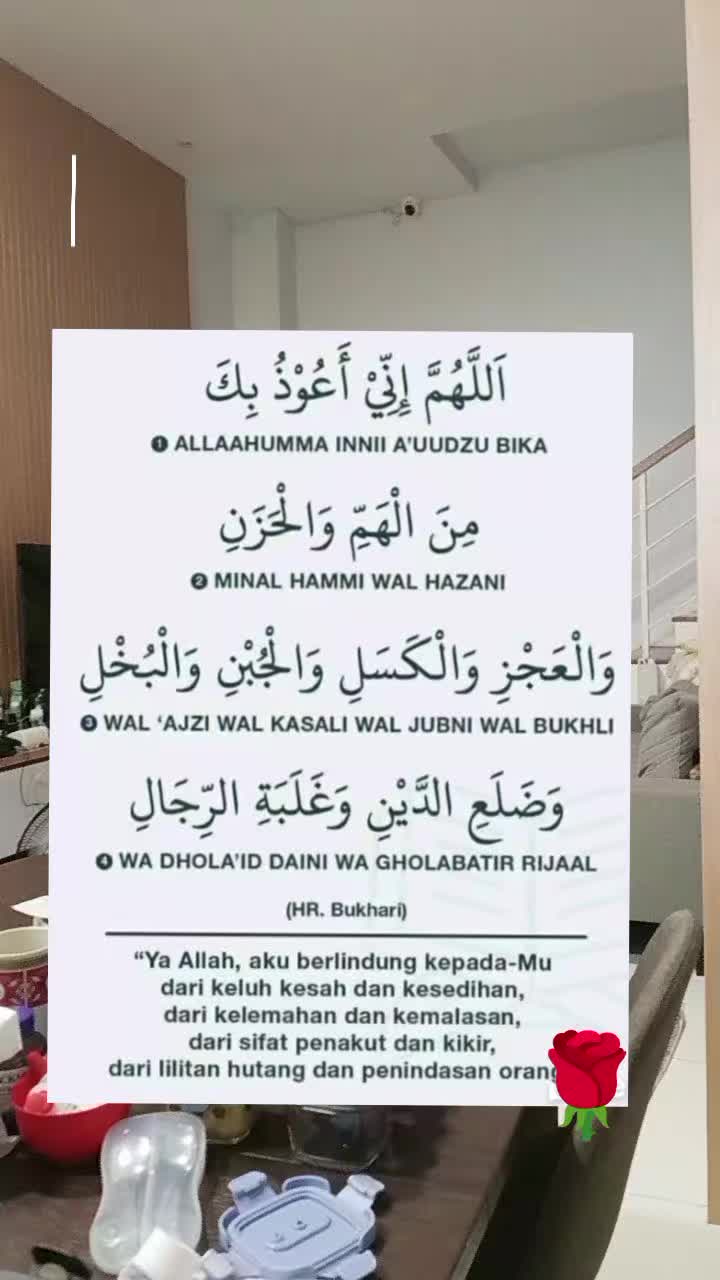 اَللَّهُمَّ إِنِّيْ أَعُوْذُ بِكَ
❶ ALLAAHUMMA INNII A'UUDZU BIKA
مِنَ الْهَمِّ وَالْحَزَنِ
❷ MINAL HAMMI WAL HAZANI
وَالْعَجْزِ وَالْكَسَلِ وَالْجُبْنِ وَالْبُخْلِ
❸ WAL ‘AJZI WAL KASALI WAL JUBNI WAL BUKHLI
وَضَلَعِ الدَّيْنِ وَغَلَبَةِ الرِّجَالِ
❹ WA DHOLA'ID DAINI WA GHOLABATIR RIJAAL
(HR. Bukhari)
“Ya Allah, aku berlindung kepada-Mu
dari keluh kesah dan kesedihan,
dari kelemahan dan kemalasan,
dari sifat penakut dan kikir,
dari lilitan hutang dan penindasan orang